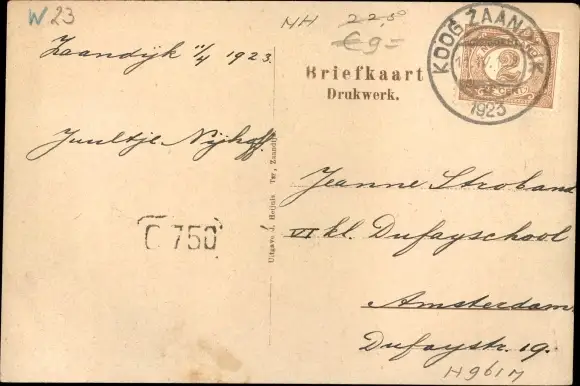 W 23
NH 22,50
€ 9=
KOOG ZAANDIJK
1923
2
Briefkaart
Drukwerk.
Zaandijk 11/4 1923.
Juultje Nijhoff.
Uitgave J. Heijnis Tsr., Zaandijk
C 750
Jeanne Stroband
VI kl. Dufayschool
Amsterdam
Dufaystr. 19.
H9617